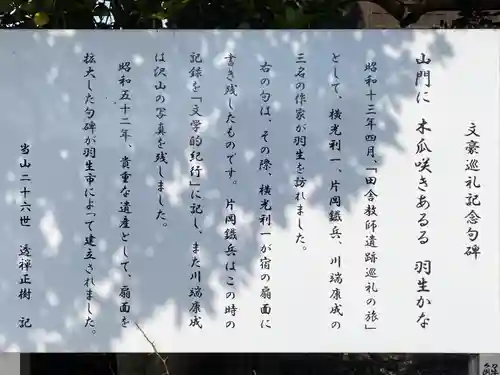 文豪巡礼記念句碑
山門に 木瓜咲きあるる 羽生かな
昭和十三年四月、「田舎教師遺跡巡礼の旅」
として、横光利一、片岡鐵兵、川端康成の
三名の作家が羽生を訪れました。
右の句は、その際、横光利一が宿の扇面に
書き残したものです。片岡鐵兵はこの時の
記録を「文学的紀行」に記し、また川端康成
は沢山の写真を残しました。
昭和五十二年、貴重な遺産として、扇面を
拡大した句碑が羽生市によって建立されました。
当山二十六世 透禅正樹 記